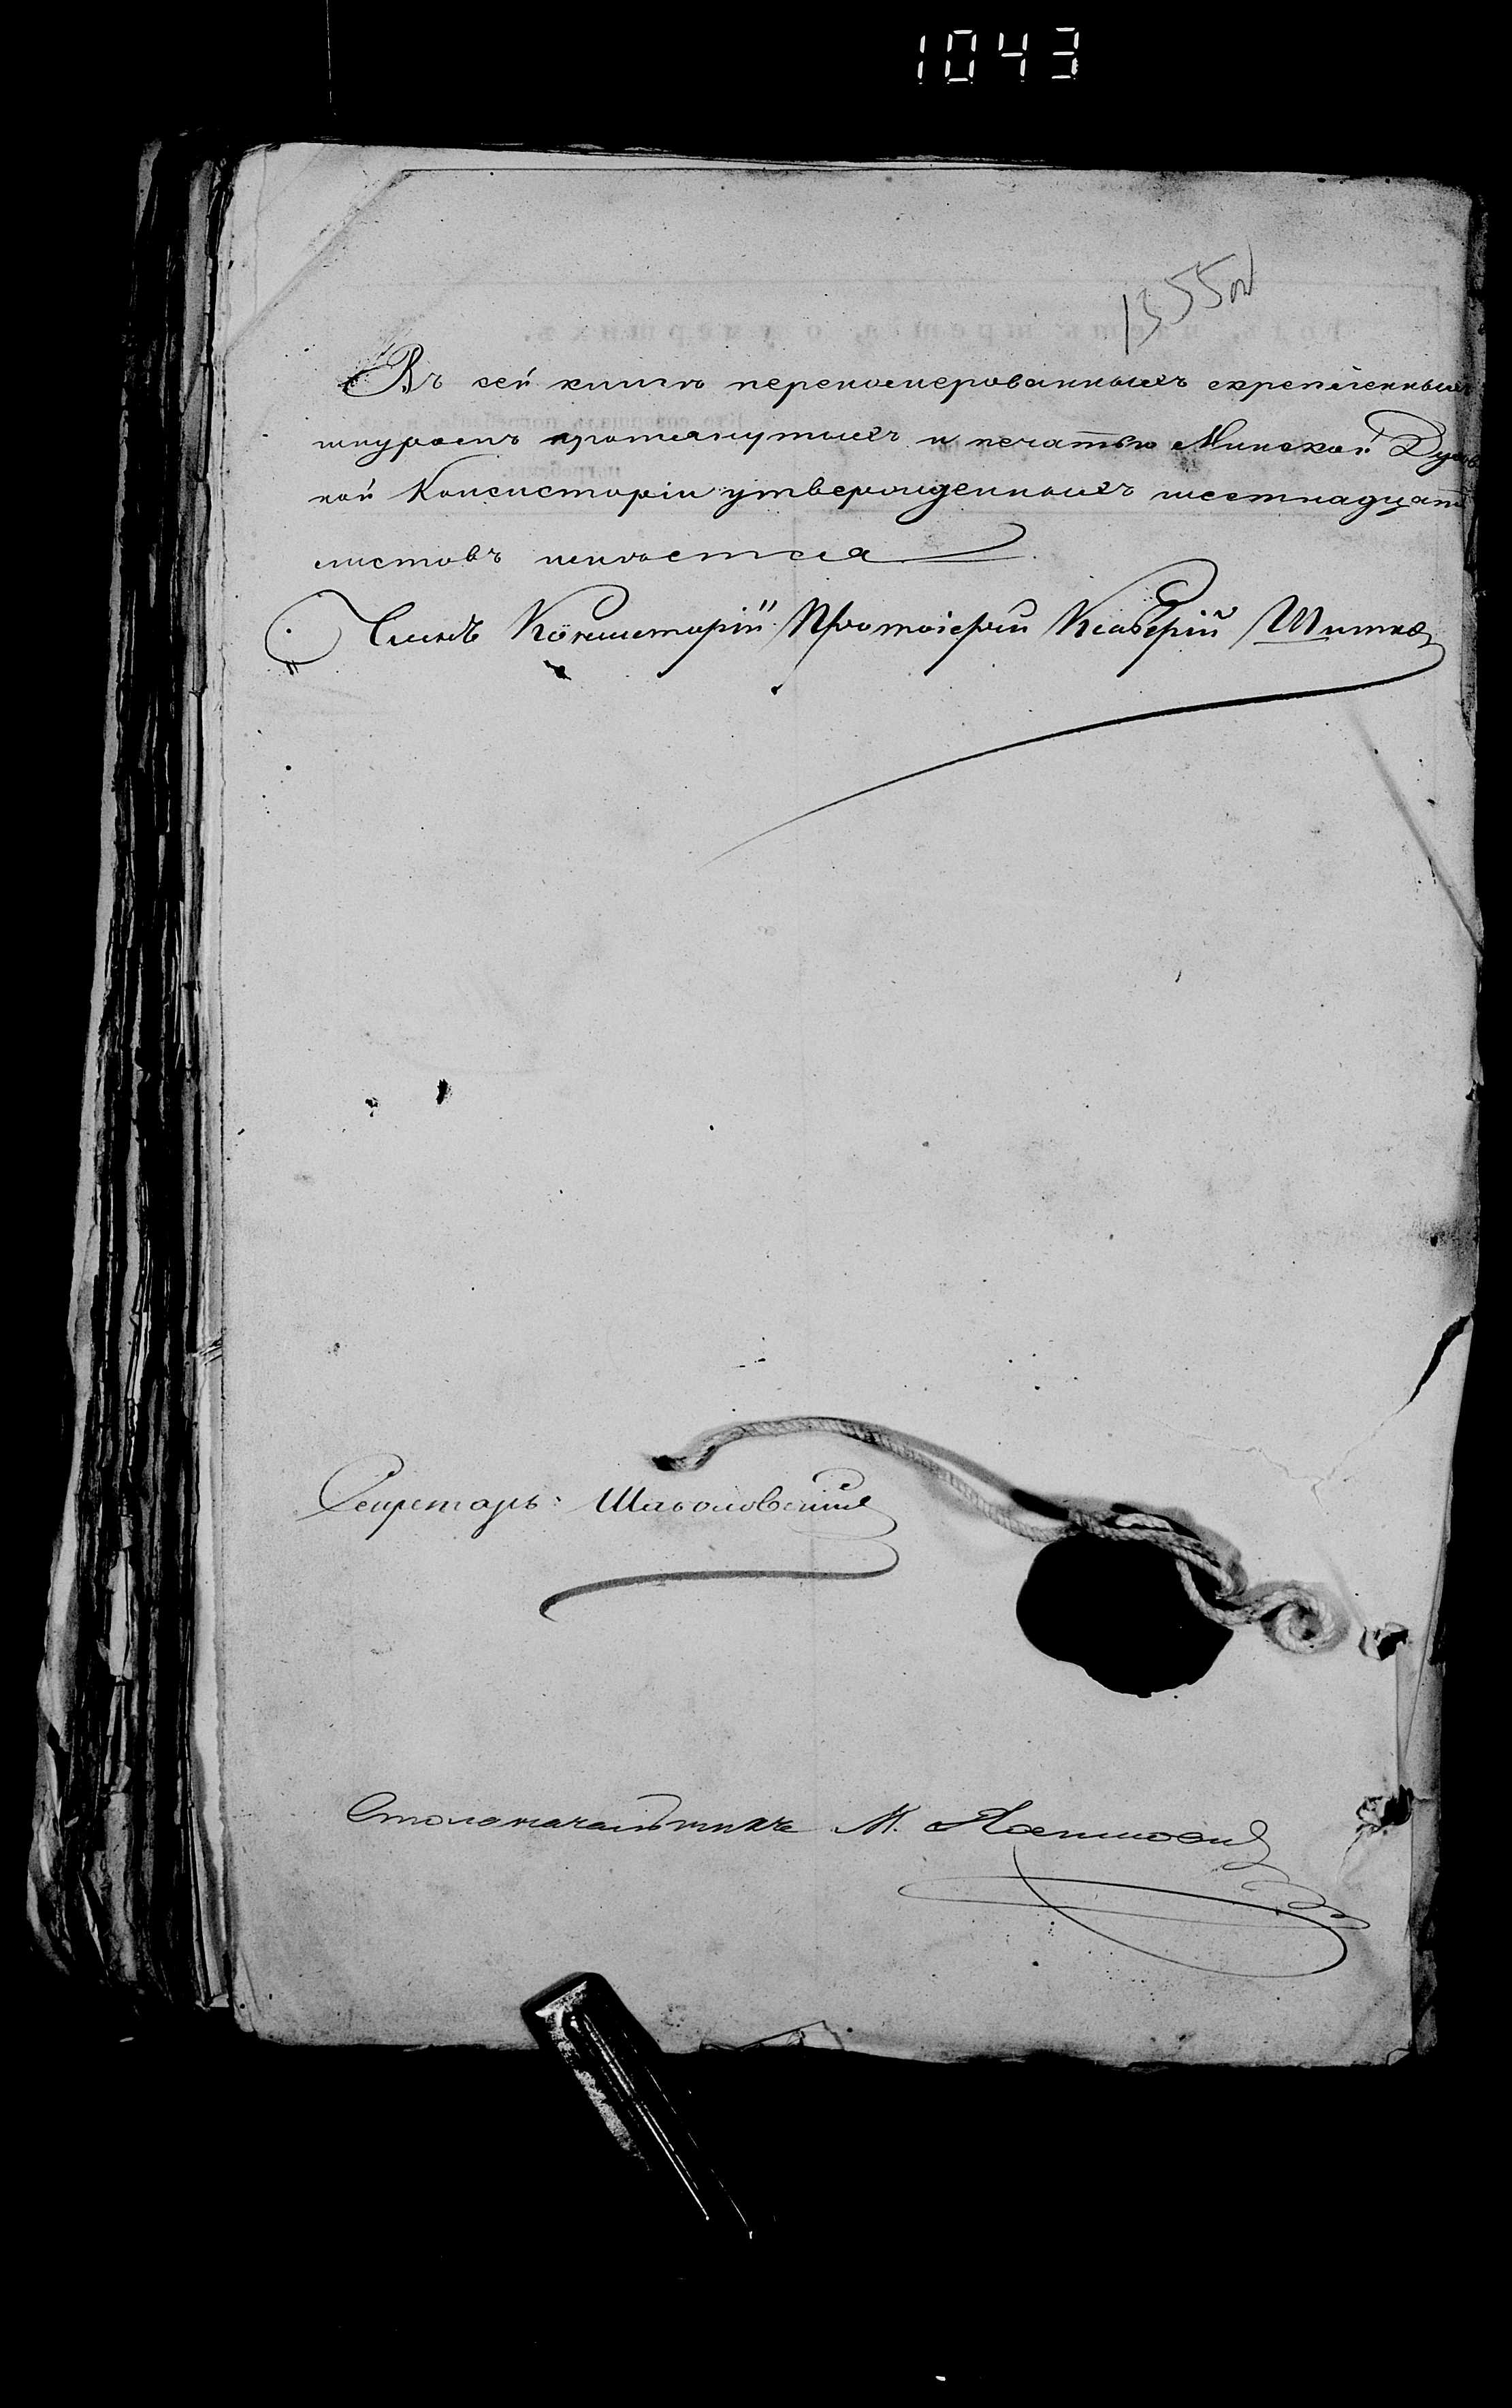 1043
1355об
Въ сей книгѣ перенумерованныхъ скрепленныхъ
шнуромъ протянутыхъ и печатью Минской Духов
ной Консисторіи утвержденныхъ шестнадцать
листовъ имѣется
Членъ Консисторіи Протоіерей Ксаверій
Секретарь:
Столоначальникъ М.